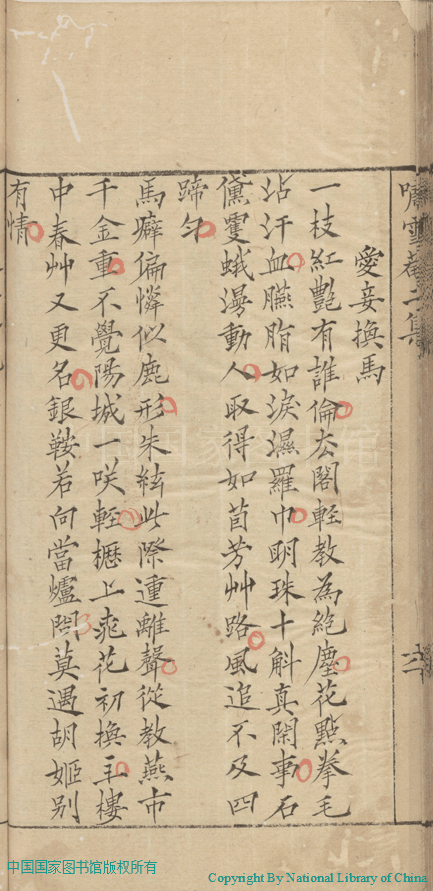 嘯雪菴二集
愛妾換馬
一枝紅艷有誰倫厺閣輕教為絶塵花點拳毛
沾汗血臙脂如淚濕羅巾明珠十斛真閒事石
黛雙蛾漫動人取得如茵芳艸路風追不及四
蹄勻
馬癖偏憐似鹿形朱絃此際連離聲從教燕市
千金重不覺陽城一笑輕櫪上桃花初換主樓
中春艸又更名銀鞍若向當爐問莫遇胡姬別
有情
中国国家图书馆版权所有
Copyright By National Library of China